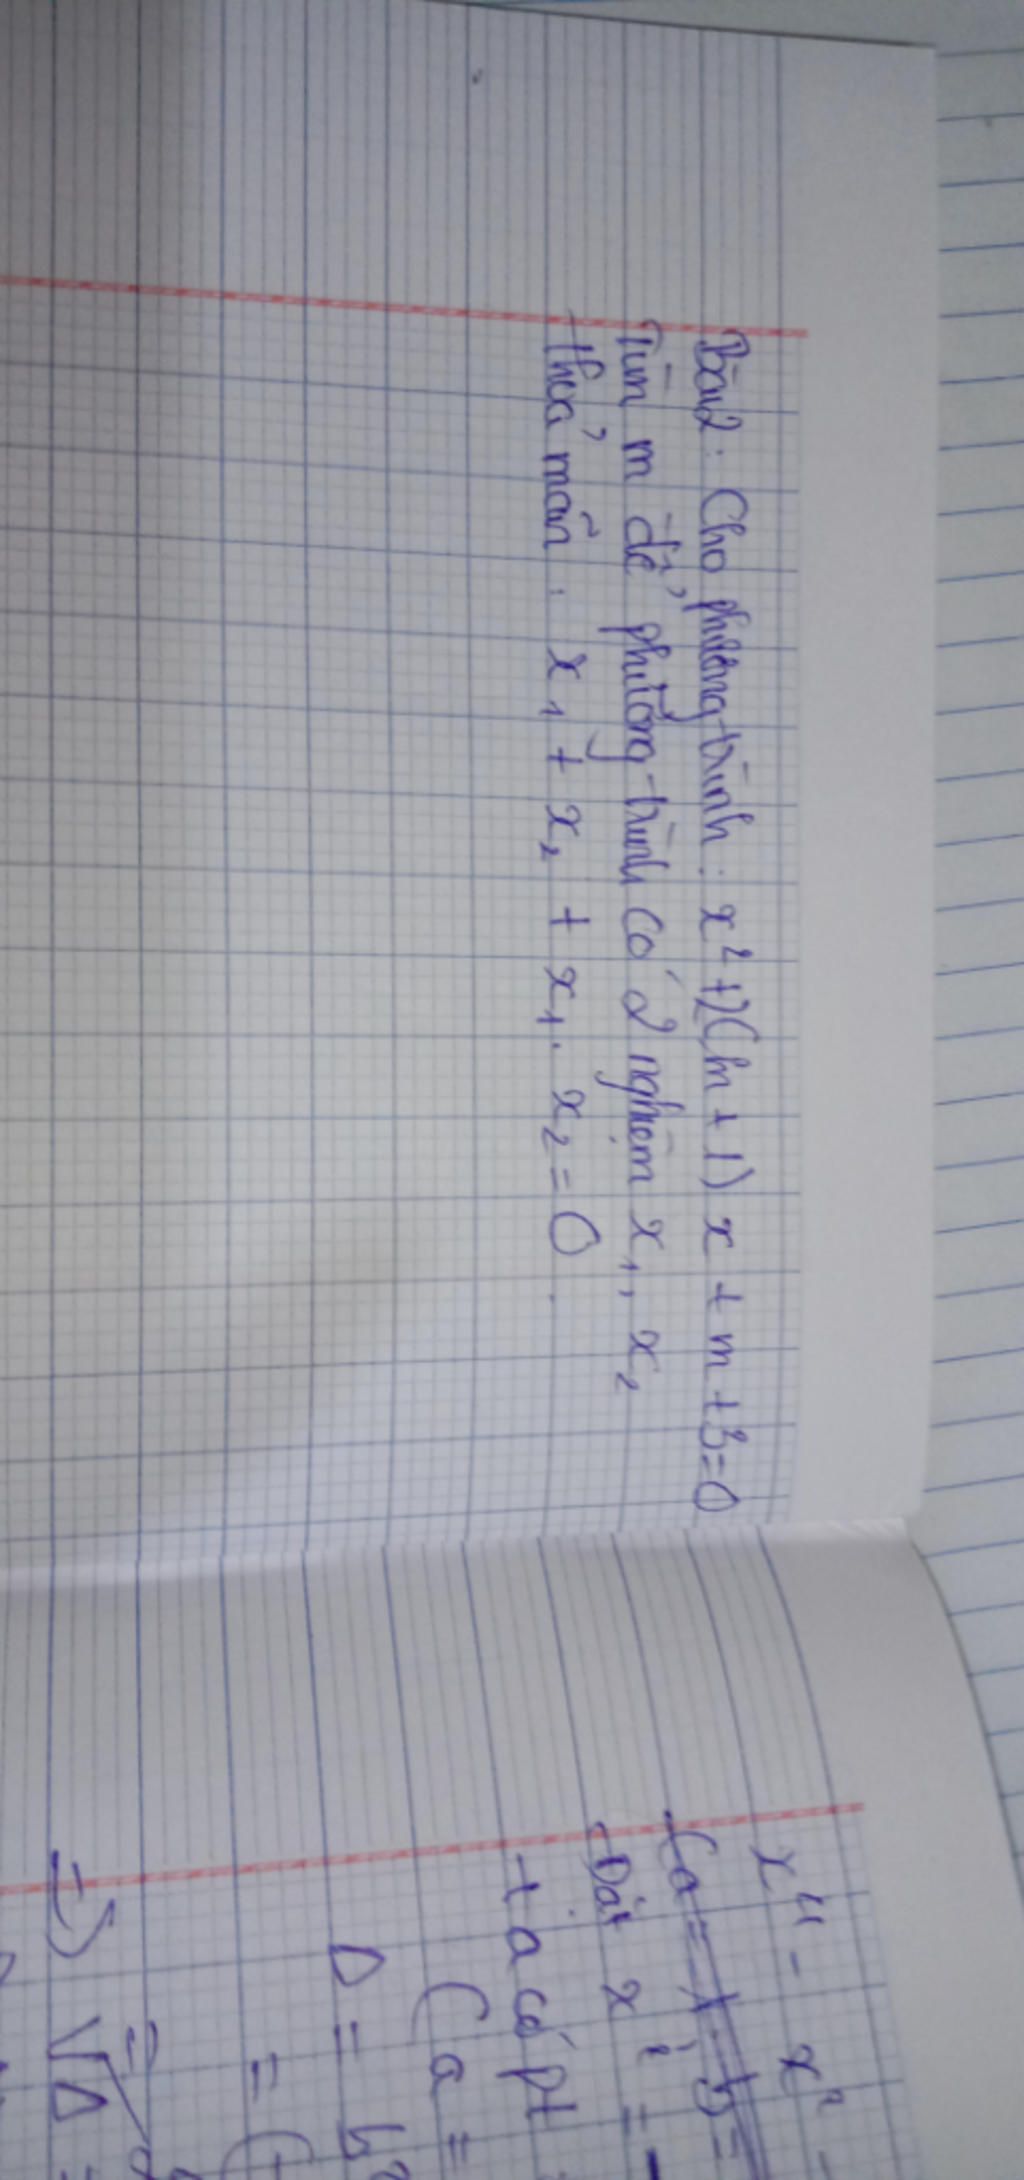 Bài 2: Cho phương trình: x² + 2(m + 1) x + m + 3 = 0
Tìm m để phương trình có 2 nghiệm x₁, x₂
thỏa mãn: x₁ + x₂ + x₁. x₂ = 0.
x⁴ - x²
Đặt x² =
ta có pt
(a =
Δ = b²
= (
=
=> √Δ =